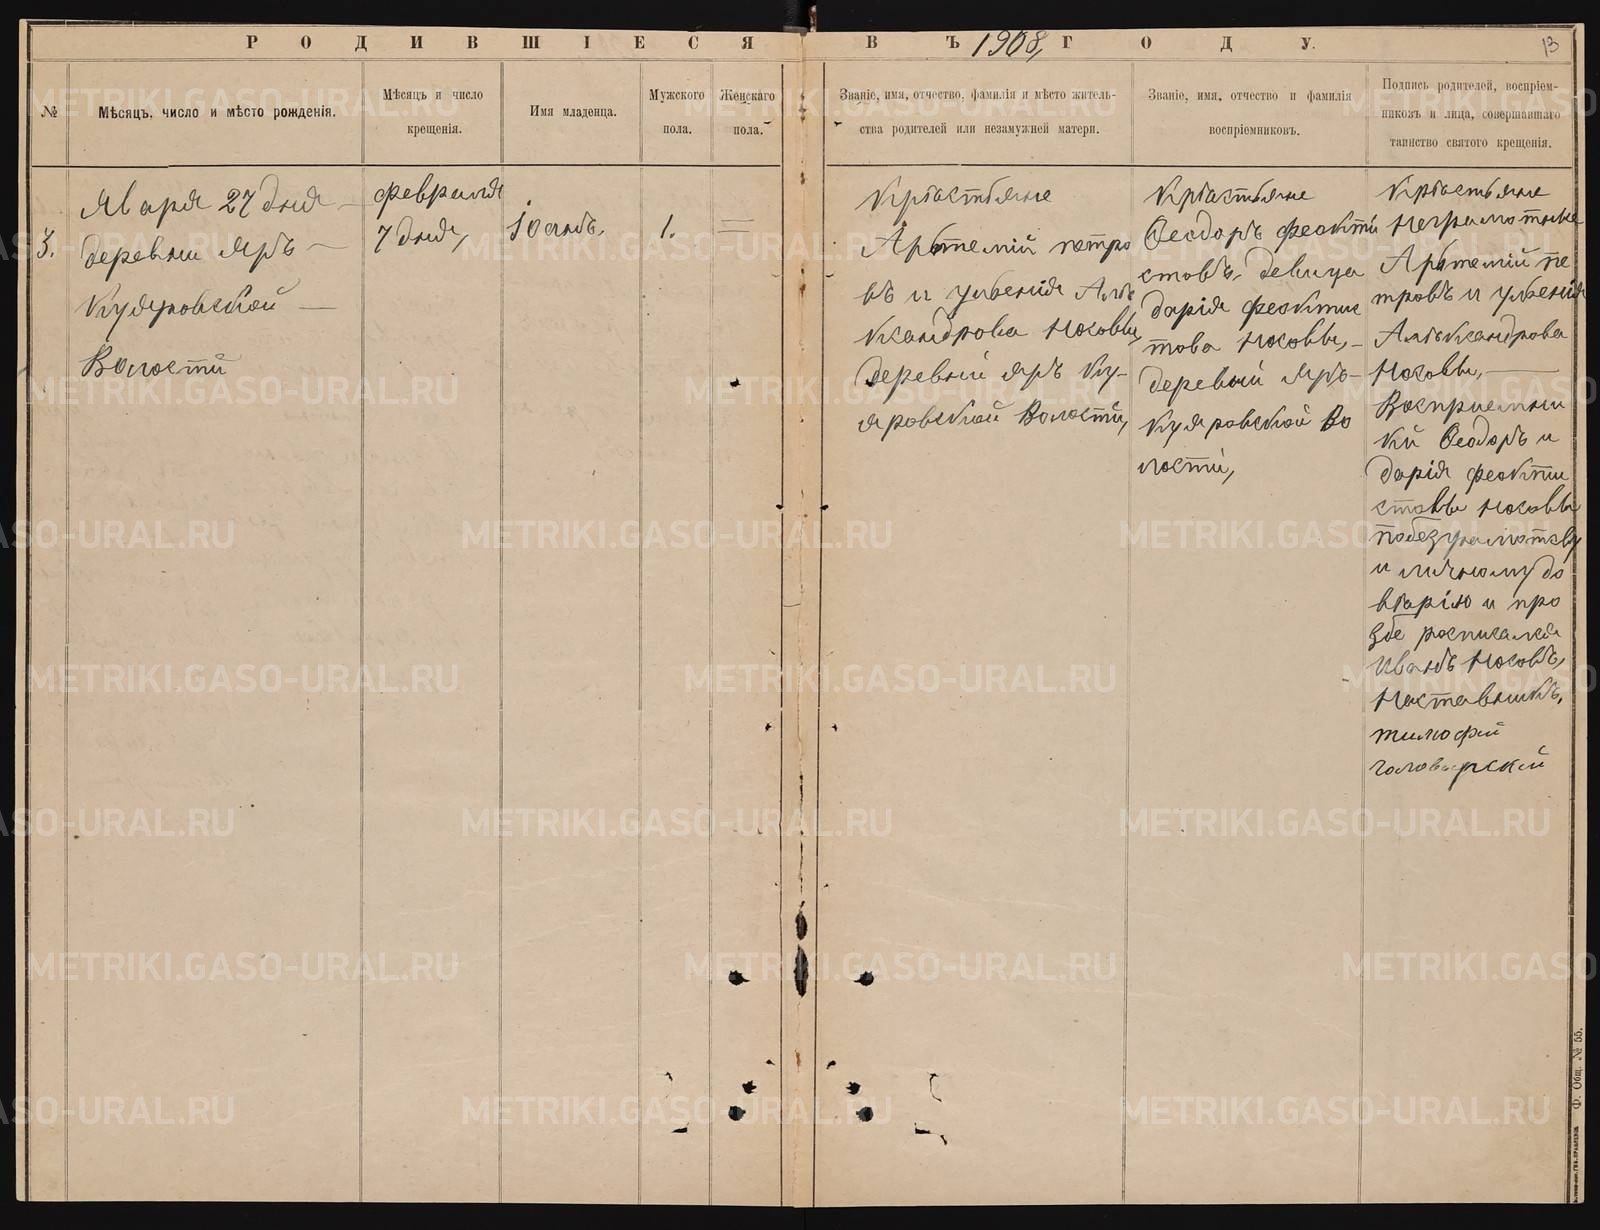 РОДИВШІЕСЯ ВЪ 1908, ГОДУ.
13
№
Мѣсяцъ, число и мѣсто рожденія.
Мѣсяцъ и число
крещенія.
Имя младенца.
Мужского
пола.
Женскаго
пола.
Званіе, имя, отчество, фамилія и мѣсто житель-
ства родителей или незамужней матери.
Званіе, имя, отчество и фамилія
воспріемниковъ.
Подпись родителей, воспріем-
никовъ и лица, совершавшаго
таинство святого крещенія.
3.
Января 27 дня —
деревни Яръ —
Куяровской —
Волости
февраля
7 дня,
Іоанъ.
1.
=
Крѣстьяне
Арьтемій петро
въ и
Алѣ
ксандрова Носовы,
деревьни Яръ Ку-
яровской Волости,
Крѣстьяне
Ѳеодоръ феокти
стовъ. девица
дарія феоктис
това Носовы, —
деревьни Яръ —
Куяровской Во
лости,
Крѣстьяне
Неграмотные
Арьтемій пе
тровъ и
Алѣксандрова
Носовы, —
Восприемьни
ки Ѳеодоръ и
дарія феокти
стовы Носовы
побезграмотству
и личному до
вѣрію и про
збе росписался
Иванъ Носовъ,
Наставникъ,
тимофей
Ф. Общ. № 55.
METRIKI.GASO-URAL.RU